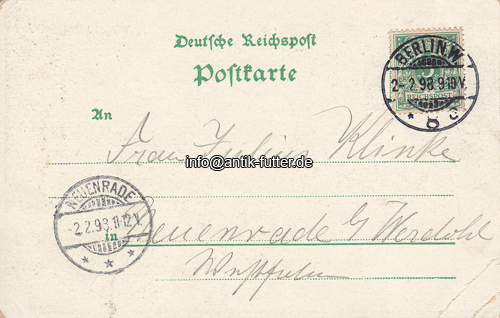 Deutsche Reichspost
Postkarte
BERLIN.W.
2-2.98.9-10V.
* 8 c
5
REICHSPOST
An
Frau Julius Klinke
info@antik-futter.de
NEUENRADE
-2.2.98.11-12V.
* * *
in
Neuenrade b/ Werdohl
Westfalen